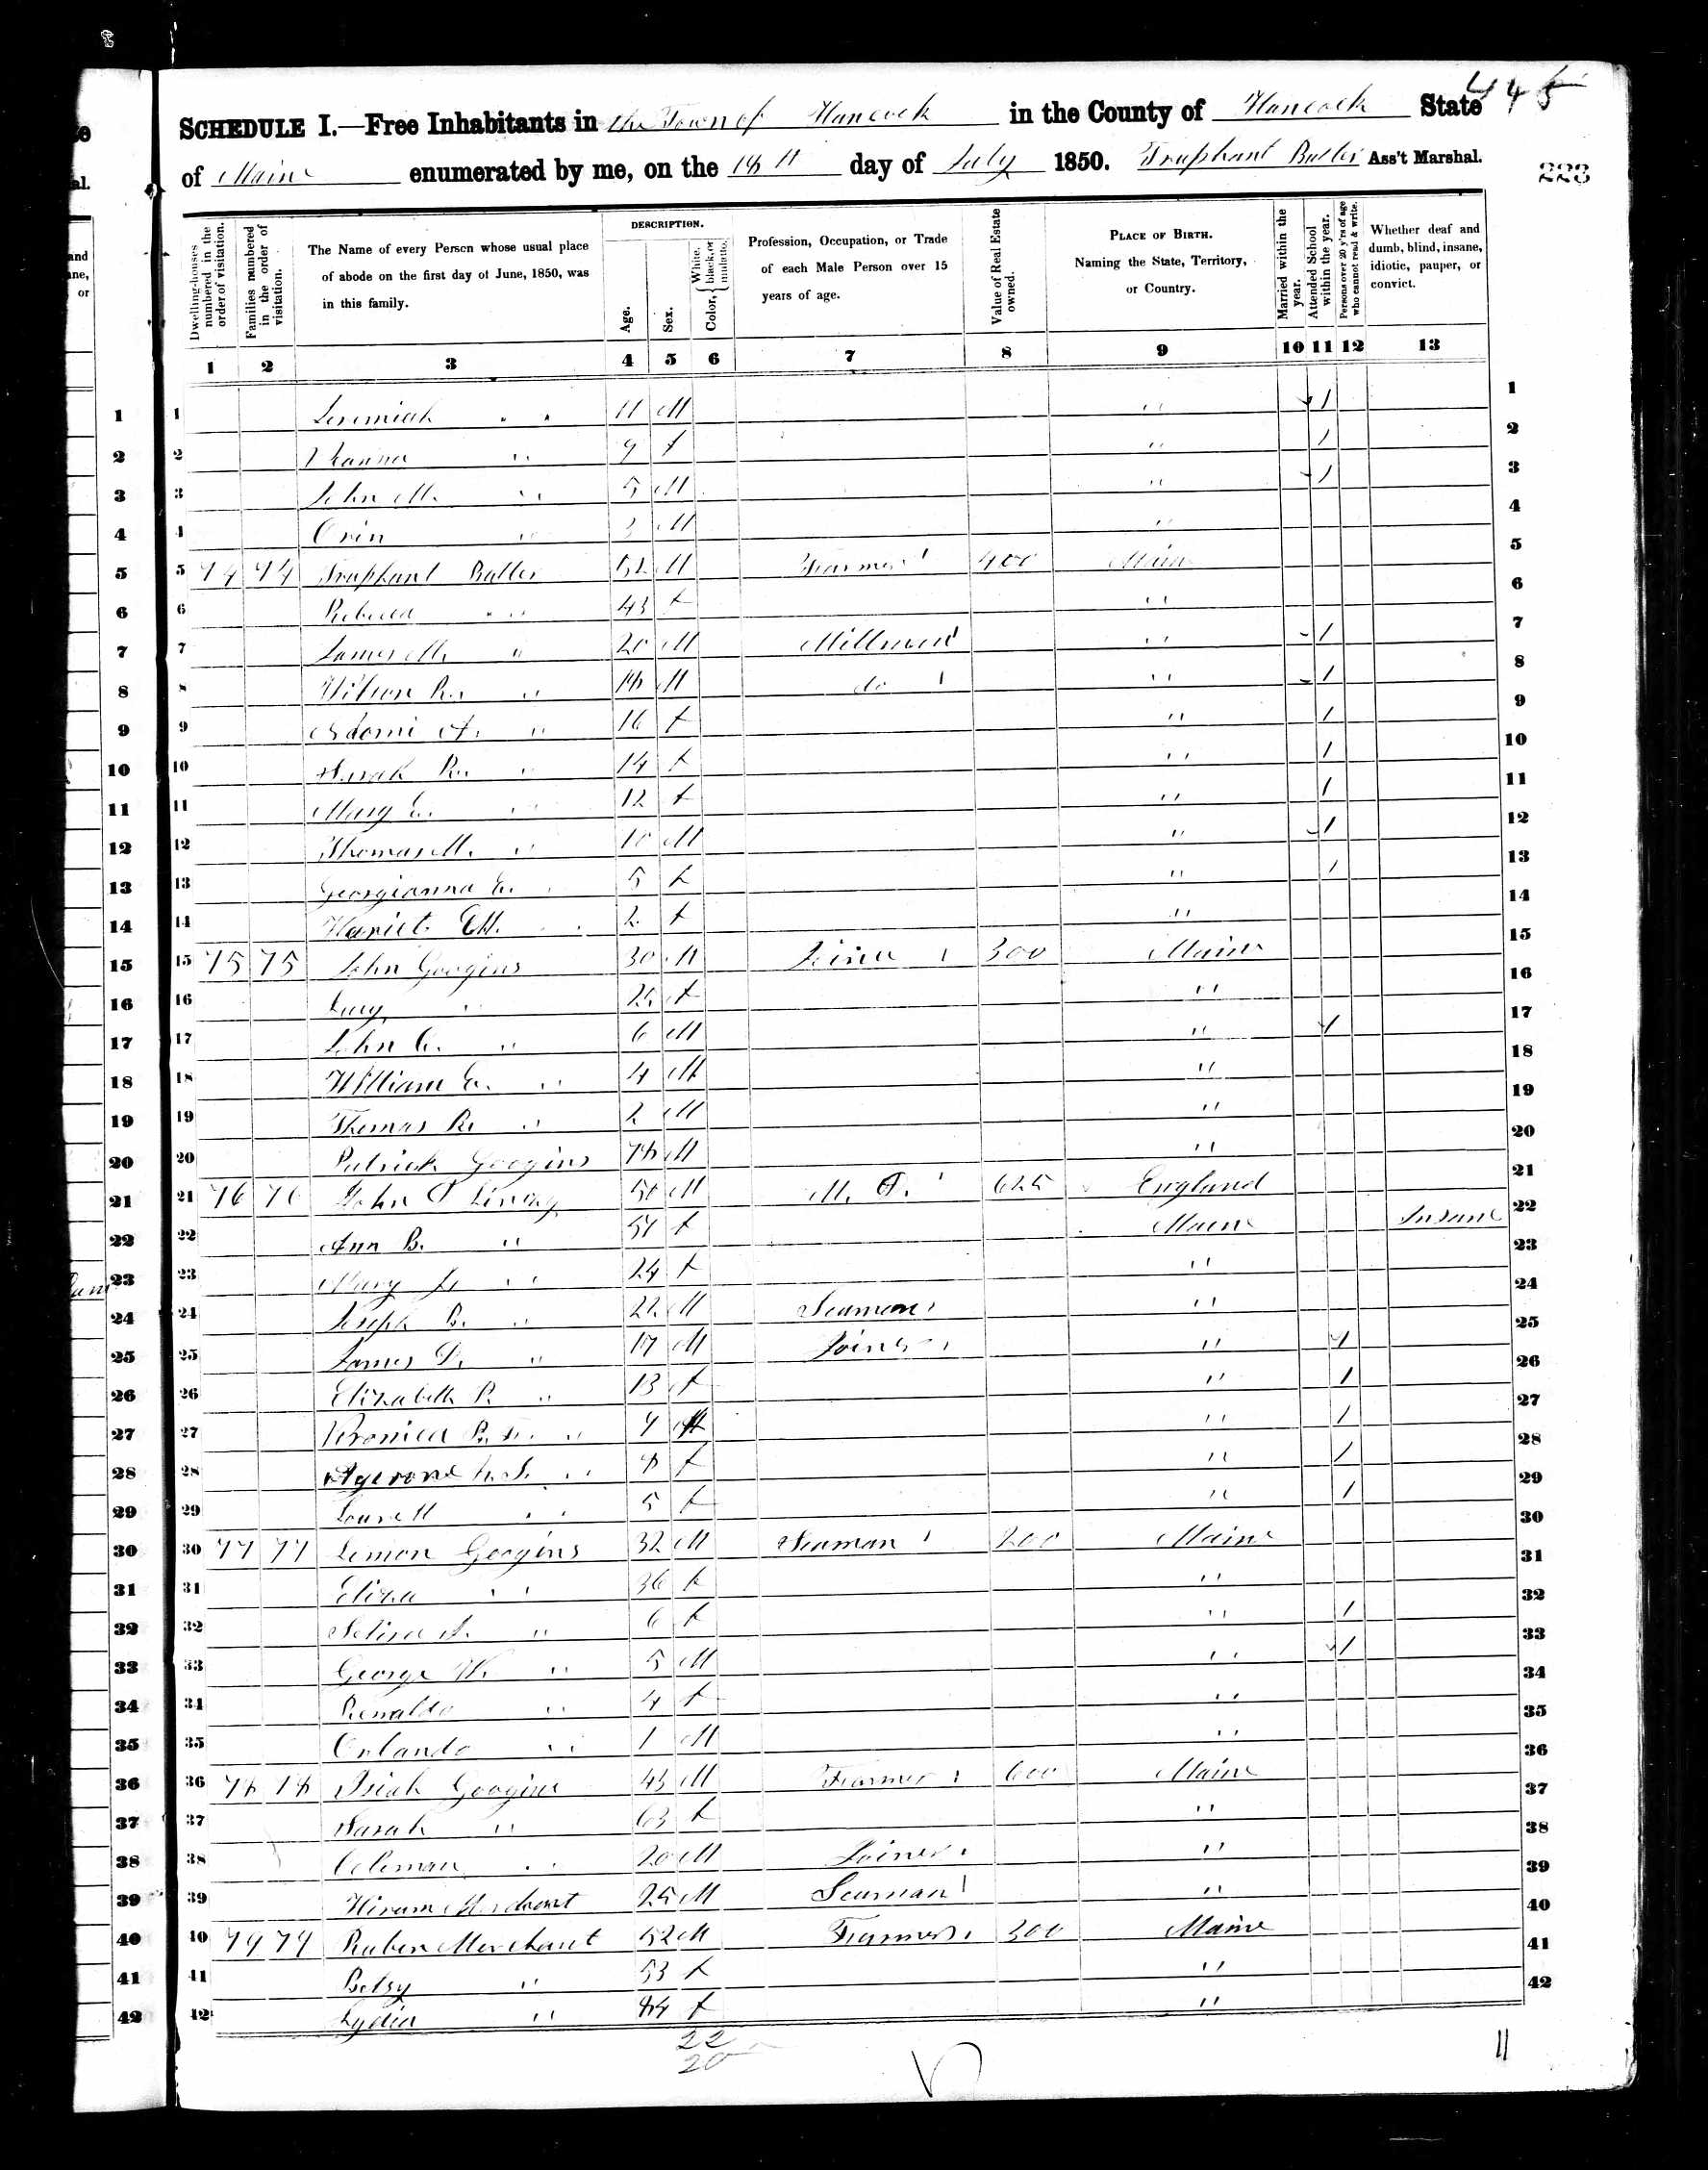 445
SCHEDULE I.—Free Inhabitants in the Town of Hancock in the County of Hancock State
of Maine enumerated by me, on the 18th day of July 1850. Truphant Butler Ass't Marshal.
223
Dwelling-houses numbered in the order of visitation.
Families numbered in the order of visitation.
The Name of every Person whose usual place of abode on the first day of June, 1850, was in this family.
DESCRIPTION.
Age.
Sex.
Color, { White, black, or mulatto.
Profession, Occupation, or Trade of each Male Person over 15 years of age.
Value of Real Estate owned.
PLACE OF BIRTH. Naming the State, Territory, or Country.
Married within the year.
Attended School within the year.
Persons over 20 y'rs of age who cannot read & write.
Whether deaf and dumb, blind, insane, idiotic, pauper, or convict.
1 2 3 4 5 6 7 8 9 10 11 12 13
1 Jeremiah " " 11 M " 1 1
2 " 9 f " 1 2
3 John M. " 5 M " 1 3
4 Orin " M " 4
5 74 74 Truphant Butler 52 M Farmer 400 Maine 5
6 Rebecca " 43 f " 6
7 James M. " 20 M Millman " 1 7
8 Wilson R. " 18 M do " 1 8
9 A. " 16 f " 1 9
10 Sarah R. " 14 f " 1 10
11 Mary E. " 12 f " 1 11
12 Thomas M. " 10 M " 1 12
13 Georgianna E. " 5 f " 1 13
14 Hariet M. " 2 f " 14
15 75 75 John Googins 30 M 300 Maine 15
16 Lucy " f " 16
17 John C. " 6 M " 1 17
18 William E. " 4 M " 18
19 Thomas R. " 2 M " 19
20 Patrick Googins 78 M " 20
21 76 76 John 50 M M. 625 England 21
22 Ann B. " 51 f Maine Insane 22
23 Mary " 24 f " 23
24 Joseph B. " 22 M Seaman " 24
25 James " 17 M Joiner " 1 25
26 Elizabeth " 13 f " 1 26
27 " 9 " 1 27
28 " 8 f " 1 28
29 " 5 f " 1 29
30 77 77 Lemon Googins 32 M Seaman 200 Maine 30
31 Eliza " 36 f " 31
32 " 6 f " 1 32
33 George W. " 5 M " 1 33
34 Renaldo " 4 f " 34
35 Orlando " 1 M " 35
36 78 78 Isiah Googins 43 M Farmer 600 Maine 36
37 Sarah " 63 f " 37
38 Coleman " 20 M Joiner " 38
39 Hiram Merchant 25 M Seaman " 39
40 79 79 Ruben Merchant 52 M Farmer 300 Maine 40
41 Betsy " 53 f " 41
42 Lydia " 84 f " 42
22
20
11